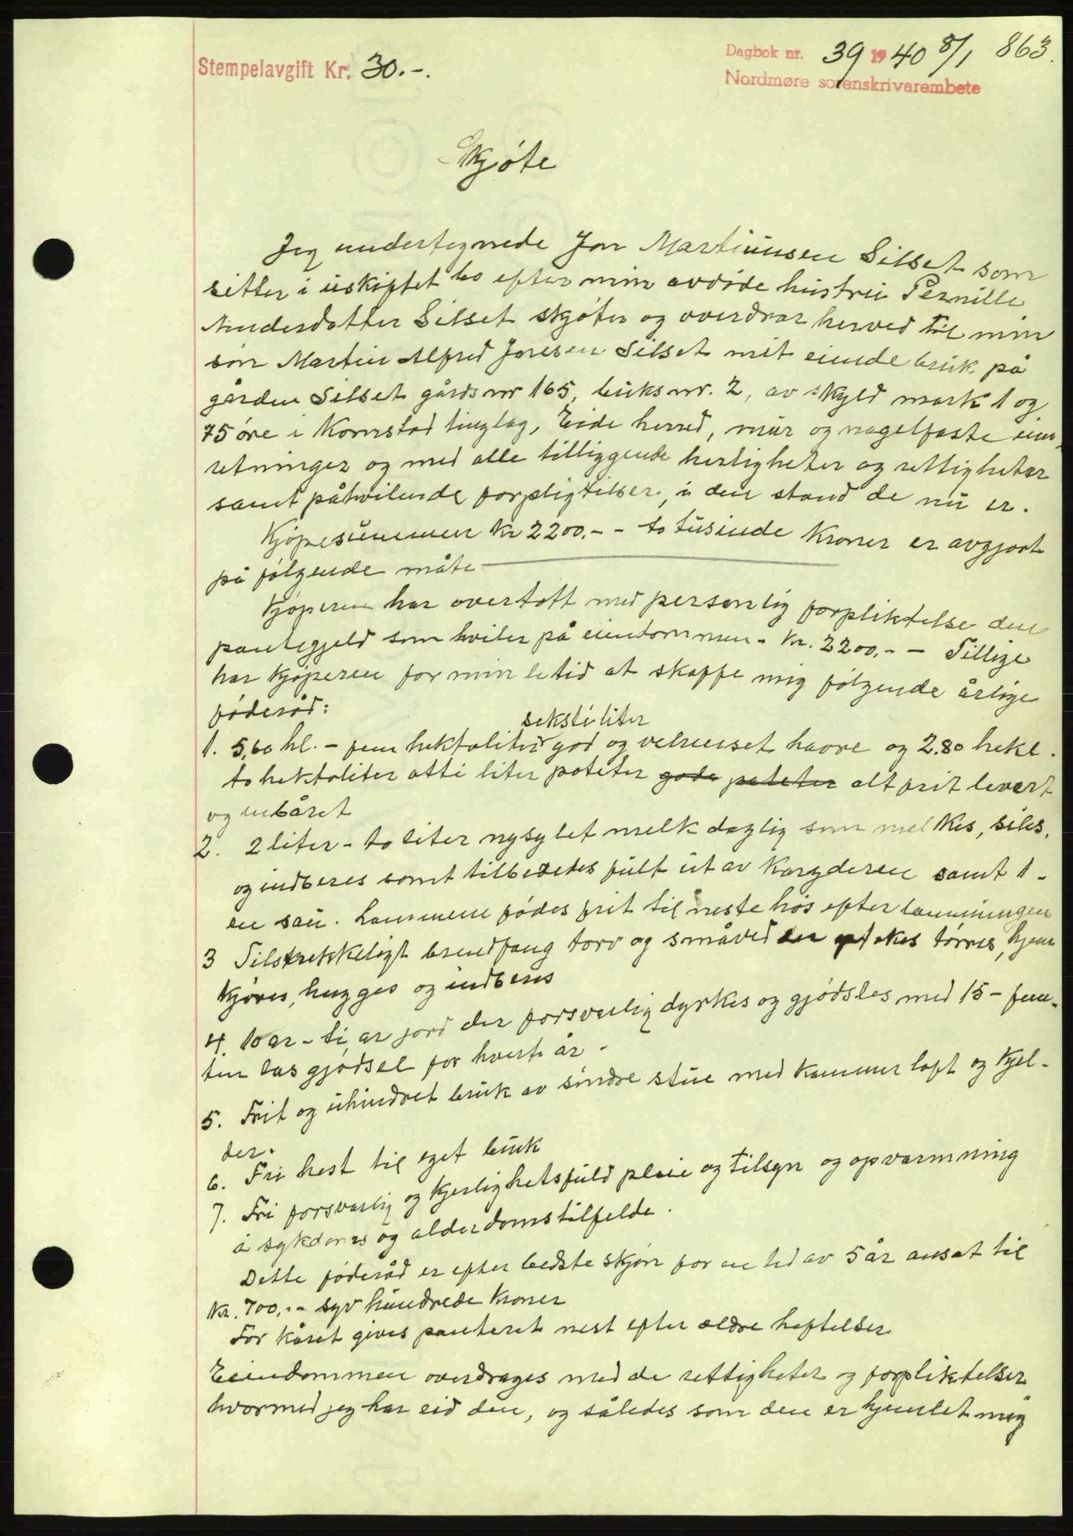 Stempelavgift Kr. 30.-.
Dagbok nr. 39 1940 8/1 863.
Nordmøre sorenskrivarembete
Skjøte
Jeg undertegnede Jon Martinusen Silset som
sitter i uskiftet bo efter min avdøde hustru Pernille
Nindesdatter Silset skjøter og overdrar herved til min
søn Martin Alfred Jonsen Silset mit eiende bruk på
gården Silset gårdsnr 165, bruksnr. 2, av skyld mark 1 og
75 øre i Kornstad tinglag, Eide herred, mur og nagelfaste inn-
retninger og med alle tilliggende herligheter og rettigheter
samt påhvilende forpligtelser, i den stand de nu er.
Kjøpesummen kr 2200.-- to tusinde kroner er avgjort
på følgende måte
Kjøperen har overtatt med personlig forpliktelse den
pantegjeld som hviler på eiendommen - kr. 2200.-- Tillige
har kjøperen for min letid at skaffe mig følgende årlige
føderåd:
seksti liter
1. 5,60 hl. - fem hektoliter god og velrenset havre og 2.80 hekl.
to hektoliter otti liter poteter gode poteter alt frit levert
og inbåret
2. 2 liter - to liter nysylet melk daglig som melkes, siles,
og indberes samt tilberedes fult ut av kargderen samt 1 -
en sau. Lammene fødes frit til neste høs efter lamningen
3 Tilstrekkeligt brendfang torv og småved der optekes tørres, hjem
kjøres, hugges og indberes
4. 10 ar - ti ar jord der forsvarlig dyrkes og gjødsles med 15 - fem-
ten las gjødsel for hvert år.
5. Frit og uhindret bruk av søndre stue med kammer loft og kjel-
der.
6. Fri hest til eget bruk
7. Fri forsvarlig og kjerlighetsfuld pleie og tilsyn og opvarmning
i sykdoms og alderdomstilfelde.
Dette føderåd er efter bedste skjøn for en tid av 5 år ansat til
kr. 700.-- syv hundrede kroner
For kåret gives panteret nest efter ældre heftelser
Eiendommen overdrages med de rettigheter og forpliktelser
hvormed jeg har eid den, og således som den er hjemlet mig